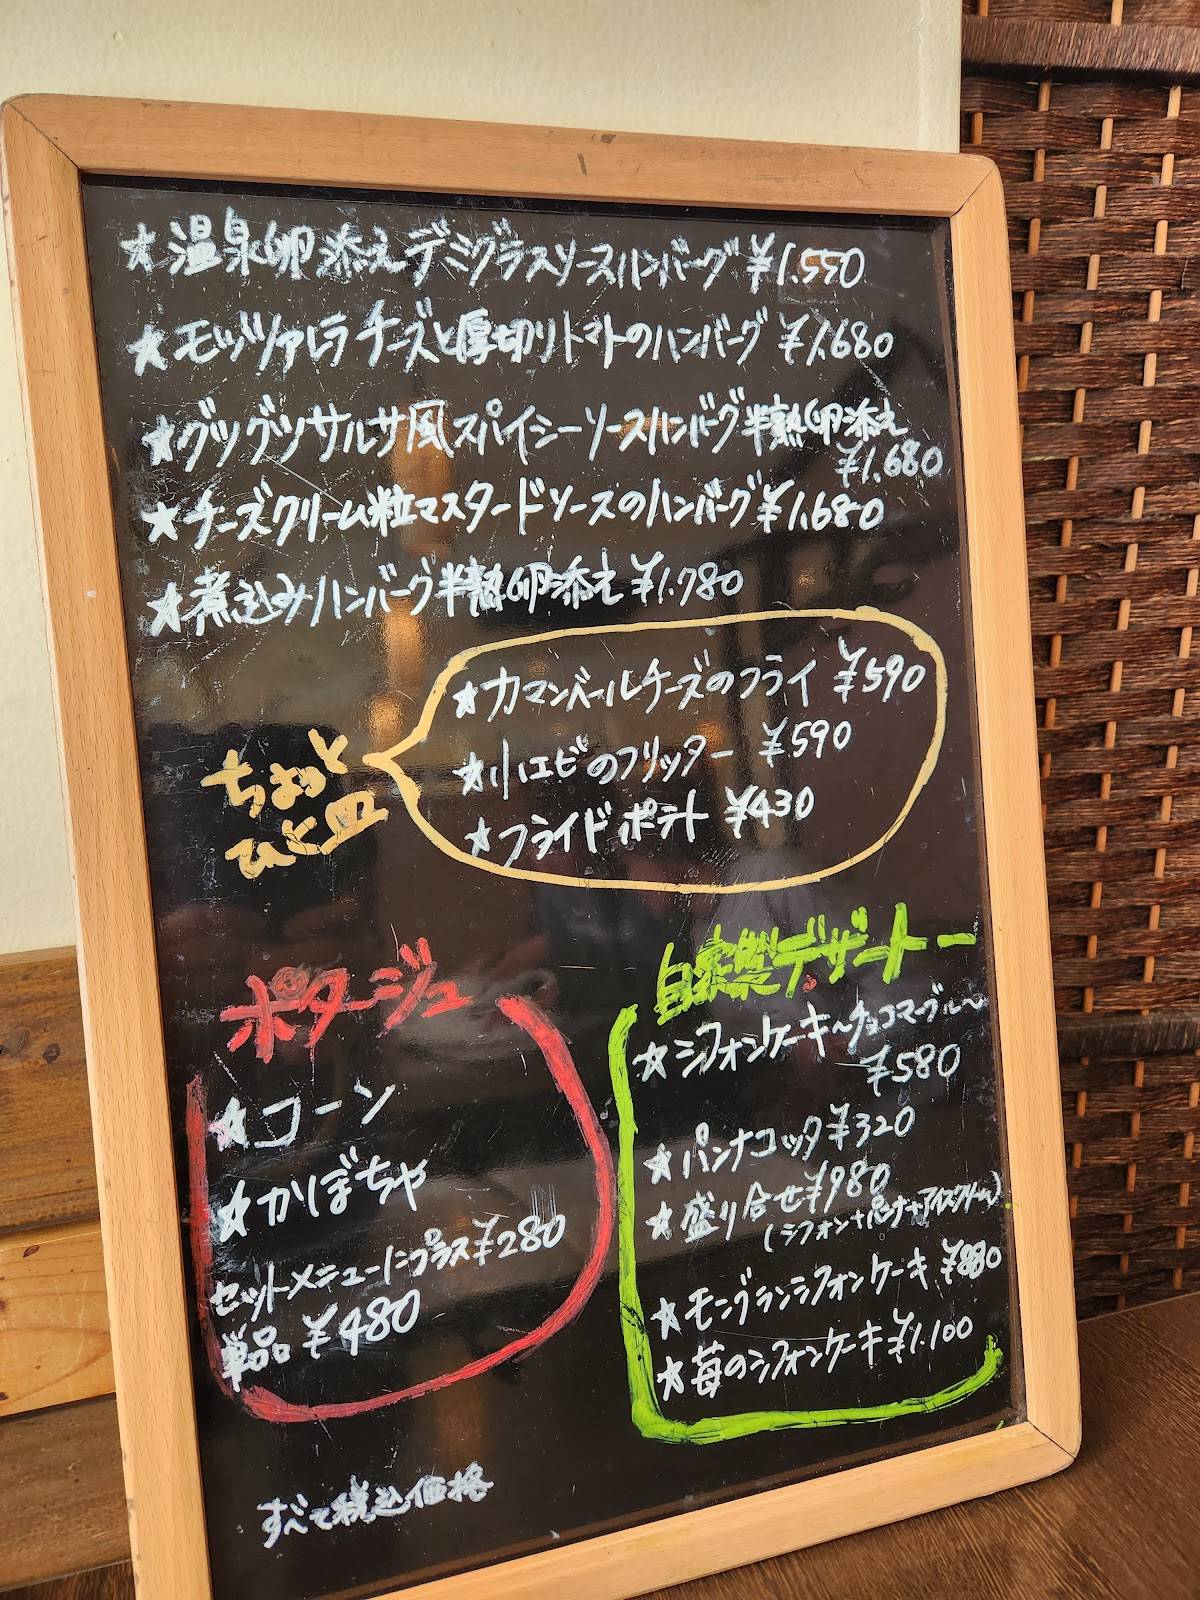 ★温泉卵添えデミグラスソースハンバーグ ¥1.550
★モッツァレラチーズと厚切りトマトのハンバーグ ¥1.680
★グツグツサルサ風スパイシーソースハンバーグ半熟卵添え
¥1.680
★チーズクリーム粒マスタードソースのハンバーグ ¥1.680
★煮込みハンバーグ半熟卵添え ¥1.780
ちょっと
ひと皿
★カマンベールチーズのフライ ¥590
★小エビのフリッター ¥590
★フライドポテト ¥430
ポタージュ
★コーン
★かぼちゃ
セットメニューにプラス¥280
単品 ¥480
自家製デザート
★シフォンケーキ〜チョコマーブル〜
¥580
★パンナコッタ ¥320
★盛り合せ ¥980
(シフォン+パンナ+アイスクリーム)
★モンブランシフォンケーキ
★苺のシフォンケーキ ¥1.100
すべて税込価格